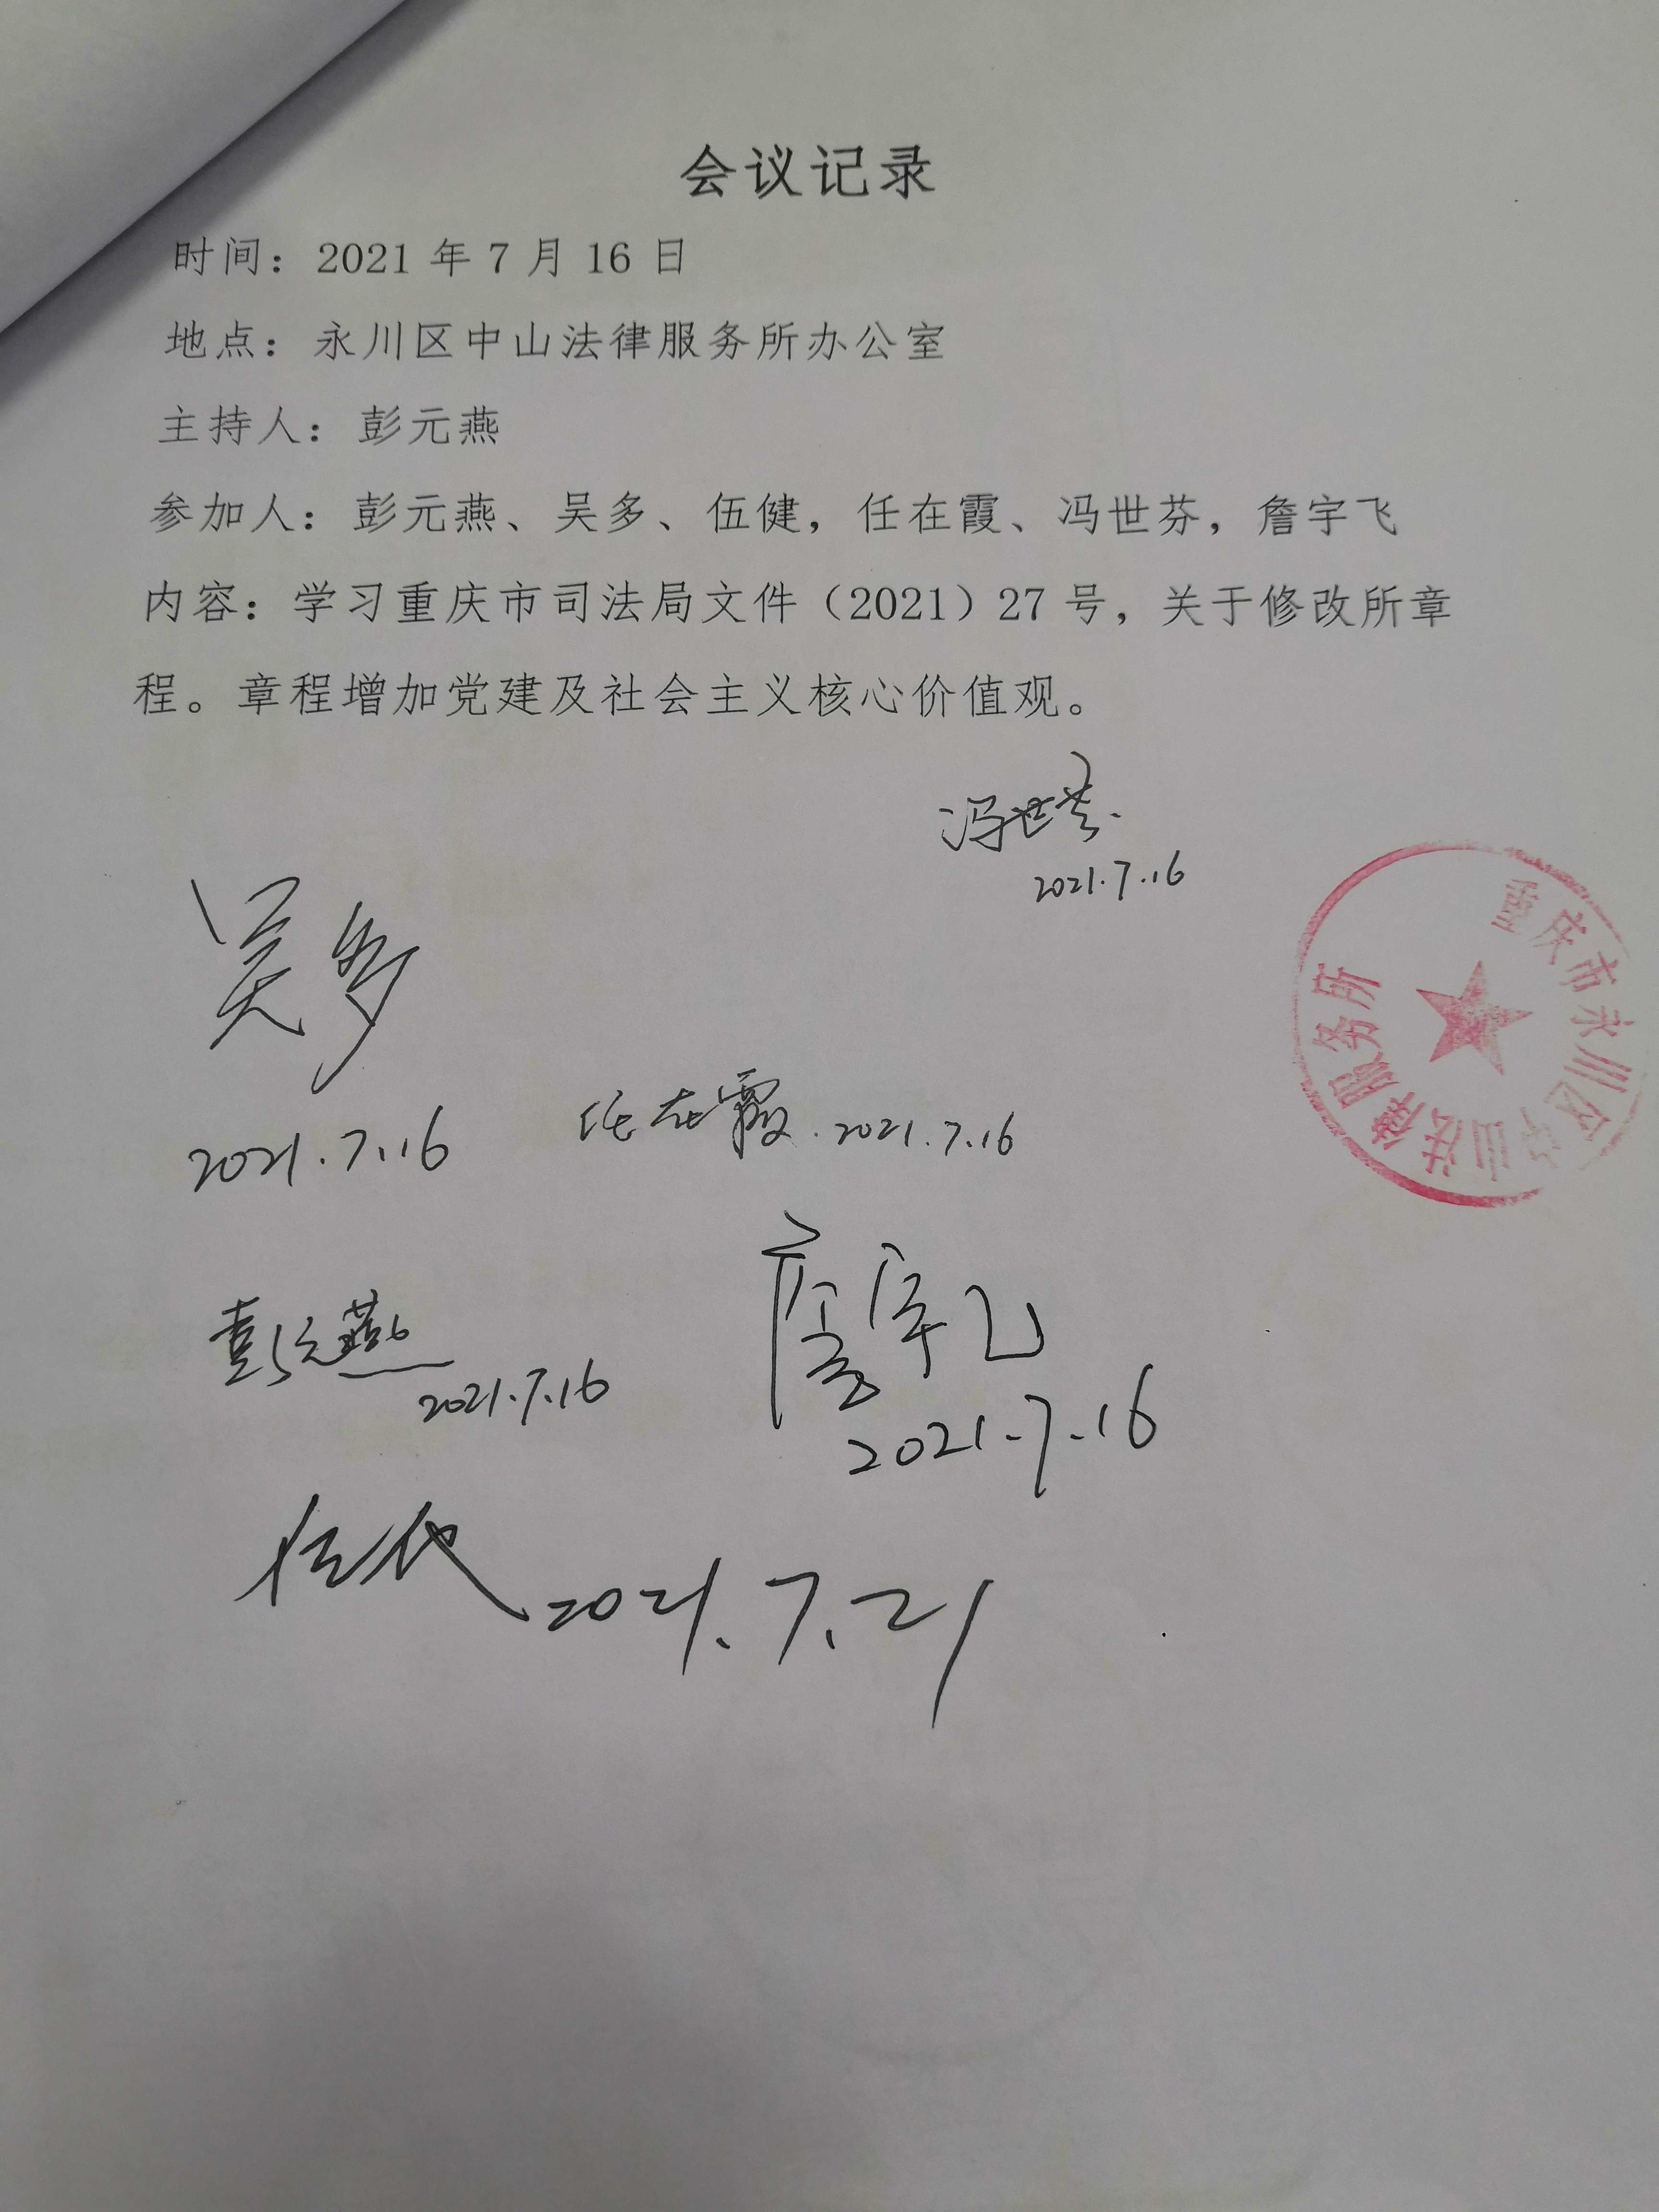 会议记录
时间：2021 年 7 月 16 日
地点：永川区中山法律服务所办公室
主持人：彭元燕
参加人：彭元燕、吴多、伍健，任在霞、冯世芬，詹宇飞
内容：学习重庆市司法局文件（2021）27 号，关于修改所章
程。章程增加党建及社会主义核心价值观。
冯世芬
2021.7.16
吴多
2021.7.16
任在霞.2021.7.16
彭元燕
2021.7.16
詹宇飞
2021.7.16
2021.7.21
重庆市永川区中山法律服务所